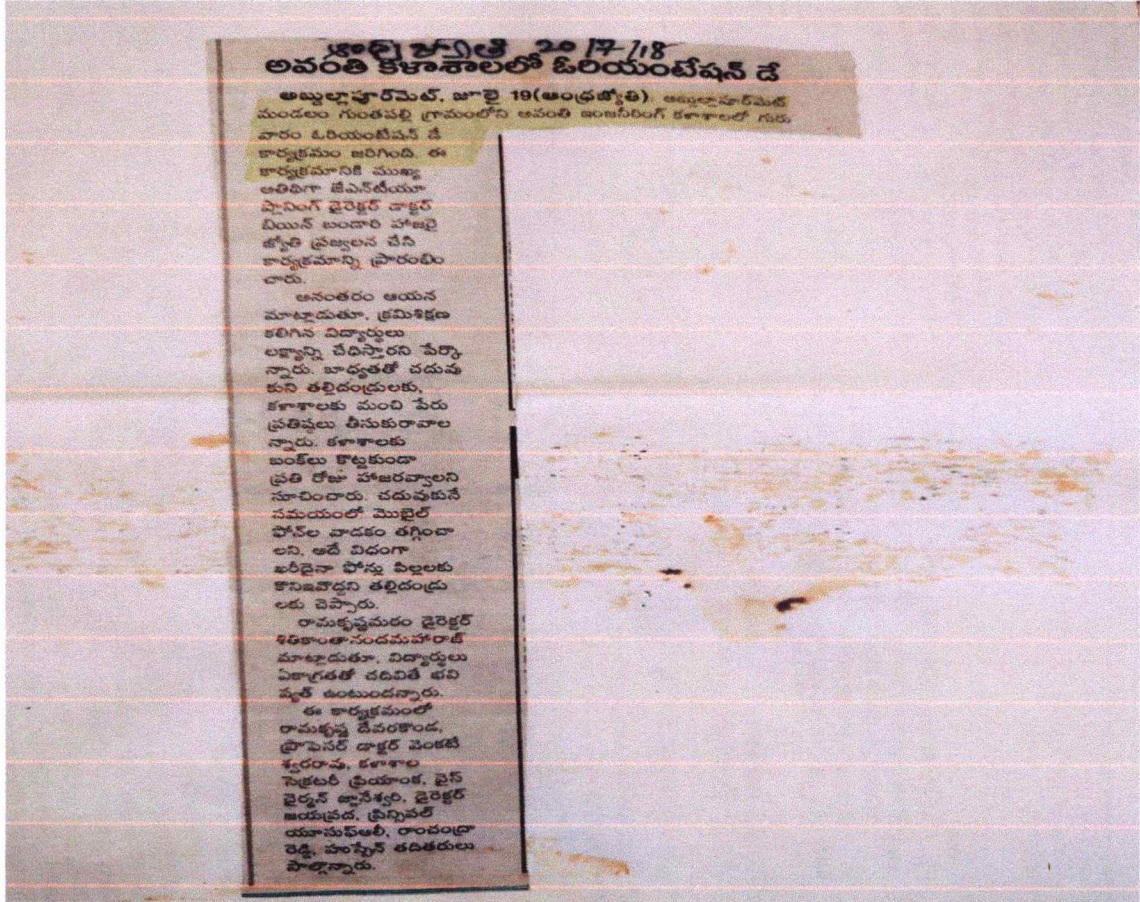 ఆంధ్రజ్యోతి 20/7/18
అవంతి కళాశాలలో ఓరియంటేషన్ డే
అబ్దుల్లాపూర్‌మెట్, జూలై 19(ఆంధ్రజ్యోతి): అబ్దుల్లాపూర్‌మెట్
మండలం గుంతపల్లి గ్రామంలోని అవంతి ఇంజనీరింగ్ కళాశాలలో గురు
వారం ఓరియంటేషన్ డే
కార్యక్రమం జరిగింది. ఈ
కార్యక్రమానికి ముఖ్య
అతిథిగా జేఎన్‌టీయూ
ప్లానింగ్ డైరెక్టర్ డాక్టర్
బియిన్ బండారి హాజరై
జ్యోతి ప్రజ్వలన చేసి
కార్యక్రమాన్ని ప్రారంభిం
చారు.
అనంతరం ఆయన
మాట్లాడుతూ, క్రమశిక్షణ
కలిగిన విద్యార్థులు
లక్ష్యాన్ని చేధిస్తారని పేర్కొ
న్నారు. బాధ్యతతో చదువు
కుని తల్లిదండ్రులకు,
కళాశాలకు మంచి పేరు
ప్రతిష్ఠలు తీసుకురావాల
న్నారు. కళాశాలకు
బంక్‌లు కొట్టకుండా
ప్రతి రోజు హాజరవ్వాలని
సూచించారు. చదువుకునే
సమయంలో మొబైల్
ఫోన్‌ల వాడకం తగ్గించా
లని, అదే విధంగా
ఖరీదైనా ఫోన్లు పిల్లలకు
కొనిఇవొద్దని తల్లిదండ్రు
లకు చెప్పారు.
రామకృష్ణమఠం డైరెక్టర్
శితికాంతానందమహారాజ్
మాట్లాడుతూ, విద్యార్థులు
ఏకాగ్రతతో చదివితే భవి
ష్యత్ ఉంటుందన్నారు.
ఈ కార్యక్రమంలో
రామకృష్ణ దేవరకొండ,
ప్రొఫెసర్ డాక్టర్ వెంకటే
శ్వరరావు, కళాశాల
సెక్రటరీ ప్రియాంక, వైస్
చైర్మన్ జ్ఞానేశ్వరి, డైరెక్టర్
జయప్రద, ప్రిన్సిపల్
యూసుఫ్‌అలీ, రాంచంద్రా
రెడ్డి, హుస్సేన్ తదితరులు
పాల్గొన్నారు.